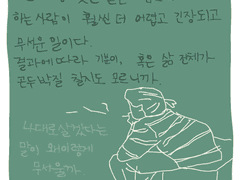 하는 사람이 훨씬 더 어렵고 긴장되고
무서운 일이다.
결과에 따라 기분이, 혹은 삶 전체가
곤두박질 칠지도 모르니까.
나대로 살겠다는
말이 왜 이렇게
무서울까.